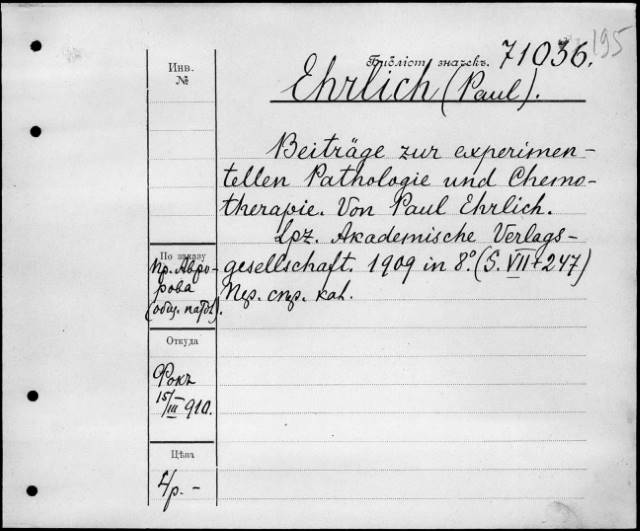 195
Библіот. значекъ. 71036.
Инв.
№
Ehrlich (Paul).
Beiträge zur experimen-
tellen Pathologie und Chemo-
therapie. Von Paul Ehrlich.
Lpz. Akademische Verlags-
gesellschaft. 1909 in 8º. (S. VII + 247)
Пер. стр. кат.
По заказу
пр. Авро-
рова
(общ. пат.).
Откуда
Фокъ
15/III 910.
Цѣна
4/р. -